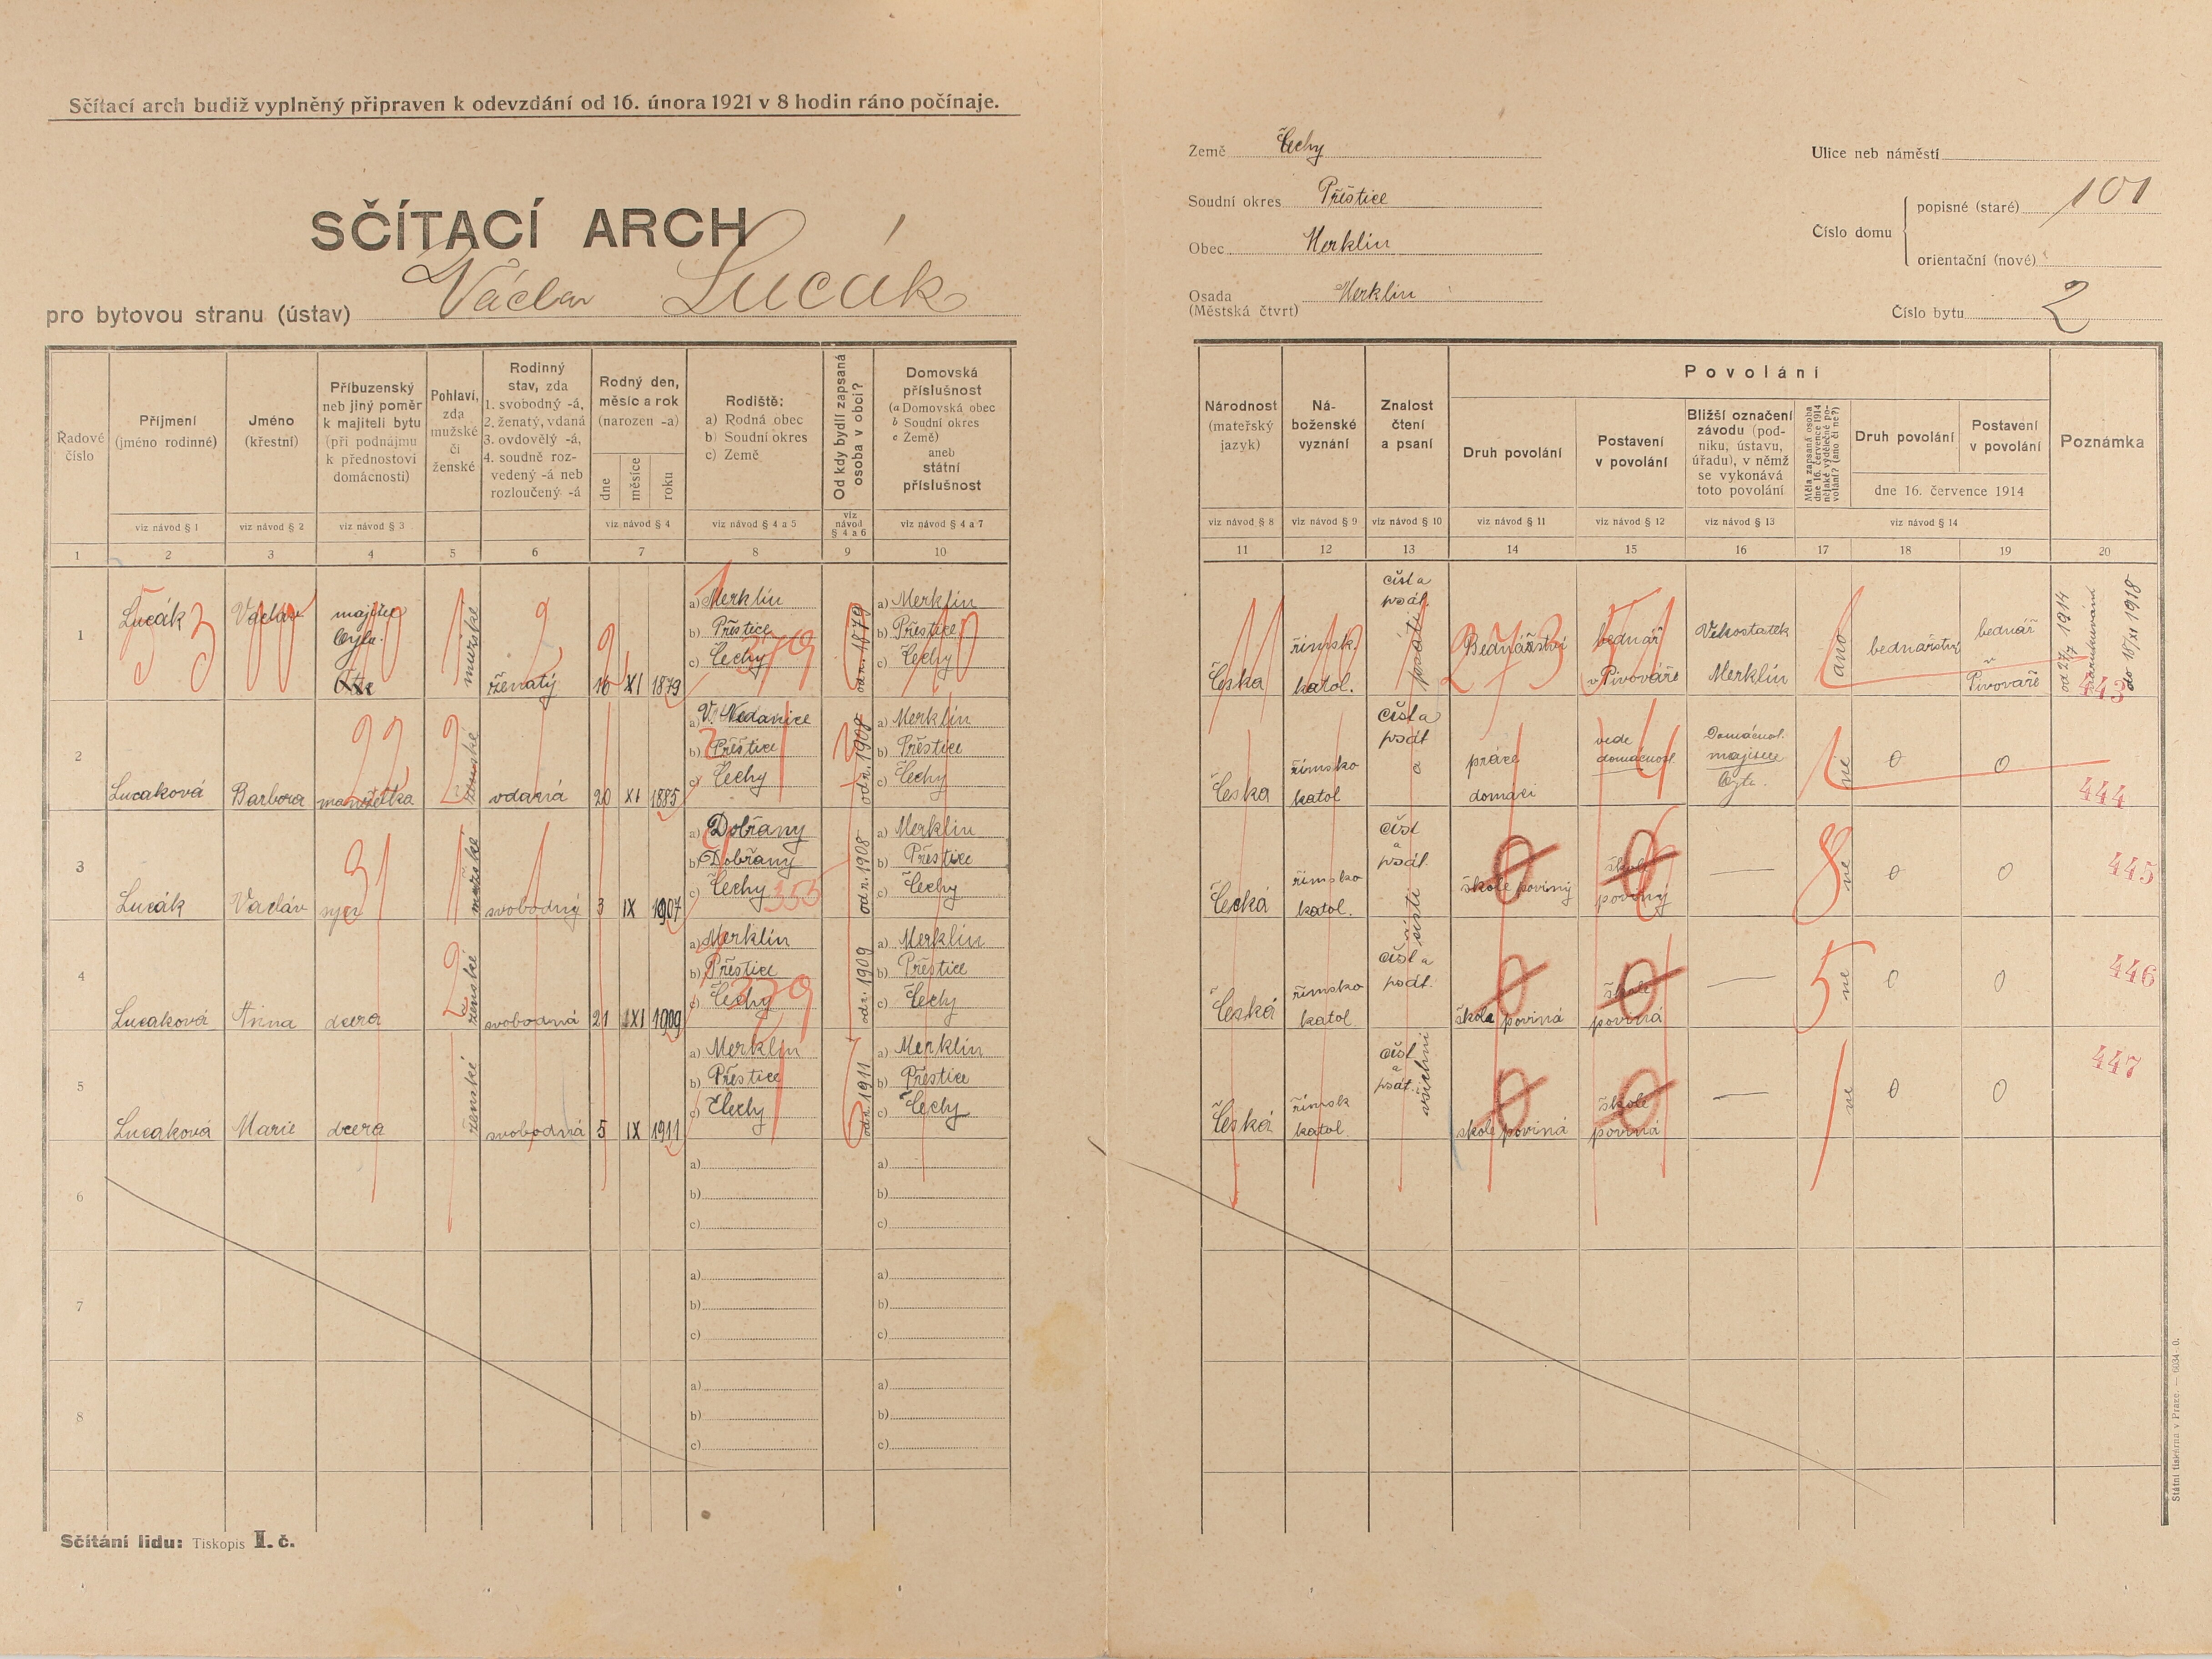 Sčítací arch budiž vyplněný připraven k odevzdání od 16. února 1921 v 8 hodin ráno počínaje.
SČÍTACÍ ARCH
pro bytovou stranu (ústav) Václav Lucák
Země Čechy
Soudní okres Přeštice
Obec Merklín
Osada Merklín
(Městská čtvrt)
Ulice neb náměstí
Číslo domu
popisné (staré) 101
orientační (nové)
Číslo bytu 2
Řadové číslo
Příjmení (jméno rodinné)
viz návod § 1
Jméno (křestní)
viz návod § 2
Příbuzenský neb jiný poměr k majiteli bytu (při podnájmu k přednostovi domácnosti)
viz návod § 3
Pohlaví, zda mužské či ženské
Rodinný stav, zda
1. svobodný -á,
2. ženatý, vdaná
3. ovdovělý -á,
4. soudně rozvedený -á neb rozloučený -á
Rodný den, měsíc a rok (narozen -a)
dne měsíce roku
viz návod § 4
Rodiště:
a) Rodná obec
b) Soudní okres
c) Země
viz návod § 4 a 5
Od kdy bydlí zapsaná osoba v obci?
viz návod § 4 a 6
Domovská příslušnost
(a Domovská obec
b Soudní okres
c Země)
aneb
státní příslušnost
viz návod § 4 a 7
Národnost (mateřský jazyk)
viz návod § 8
Náboženské vyznání
viz návod § 9
Znalost čtení a psaní
viz návod § 10
Povolání
Druh povolání
viz návod § 11
Postavení v povolání
viz návod § 12
Bližší označení závodu (podniku, ústavu, úřadu), v němž se vykonává toto povolání
viz návod § 13
Měla zapsaná osoba dne 16. července 1914 nějaké výdělečné povolání? (ano či ne?)
Druh povolání
Postavení v povolání
dne 16. července 1914
viz návod § 14
Poznámka
1 2 3 4 5 6 7 8 9 10 11 12 13 14 15 16 17 18 19 20
1 Lucák Václav majitel bytu. mužské ženatý 16 XI 1879
a) Merklín b) Přeštice c) Čechy
od n. 1879
a) Merklín b) Přeštice c) Čechy
Česka římsk. katol. číst a psát. Bednářství bednář v Pivováře Velkostatek Merklín ano bednářství bednář v Pivováře
od 27/7 1914 do 18/XI 1918
443
2 Lucaková Barbora manželka ženské vdaná 20 XI 1885
a) V. Nedanice b) Přeštice c) Čechy
od r. 1908
a) Merklín b) Přeštice c) Čechy
Česka římsko katol číst a psát práce domací vede domácnost Domácnost. majitele bytu. ne 0 0
444
3 Lucák Vacláv syn mužské svobodný 3 IX 1907
a) Dobřany b) Dobřany c) Čechy 355
od r. 1908
a) Merklín b) Přeštice c) Čechy
Česká římsko katol. číst a psát škole poviný škole poviný — ne 0 0
445
4 Lucaková Anna dcera ženské svobodná 21 XI 1909
a) Merklín b) Přeštice c) Čechy 379
od r. 1909
a) Merklín b) Přeštice c) Čechy
Česká římsko katol číst a psát. škole poviná škole poviná — ne 0 0
446
5 Lucaková Marie dcera ženské svobodná 5 IX 1911
a) Merklín b) Přeštice c) Čechy
od r. 1911
a) Merklín b) Přeštice c) Čechy
Česká římsk katol. číst a psát. škole poviná škole poviná — ne 0 0
447
6 a) b) c) a) b) c)
7 a) b) c) a) b) c)
8 a) b) c) a) b) c)
Sčítání lidu: Tiskopis I. č.
Státní tiskárna v Praze. — 6034-0.